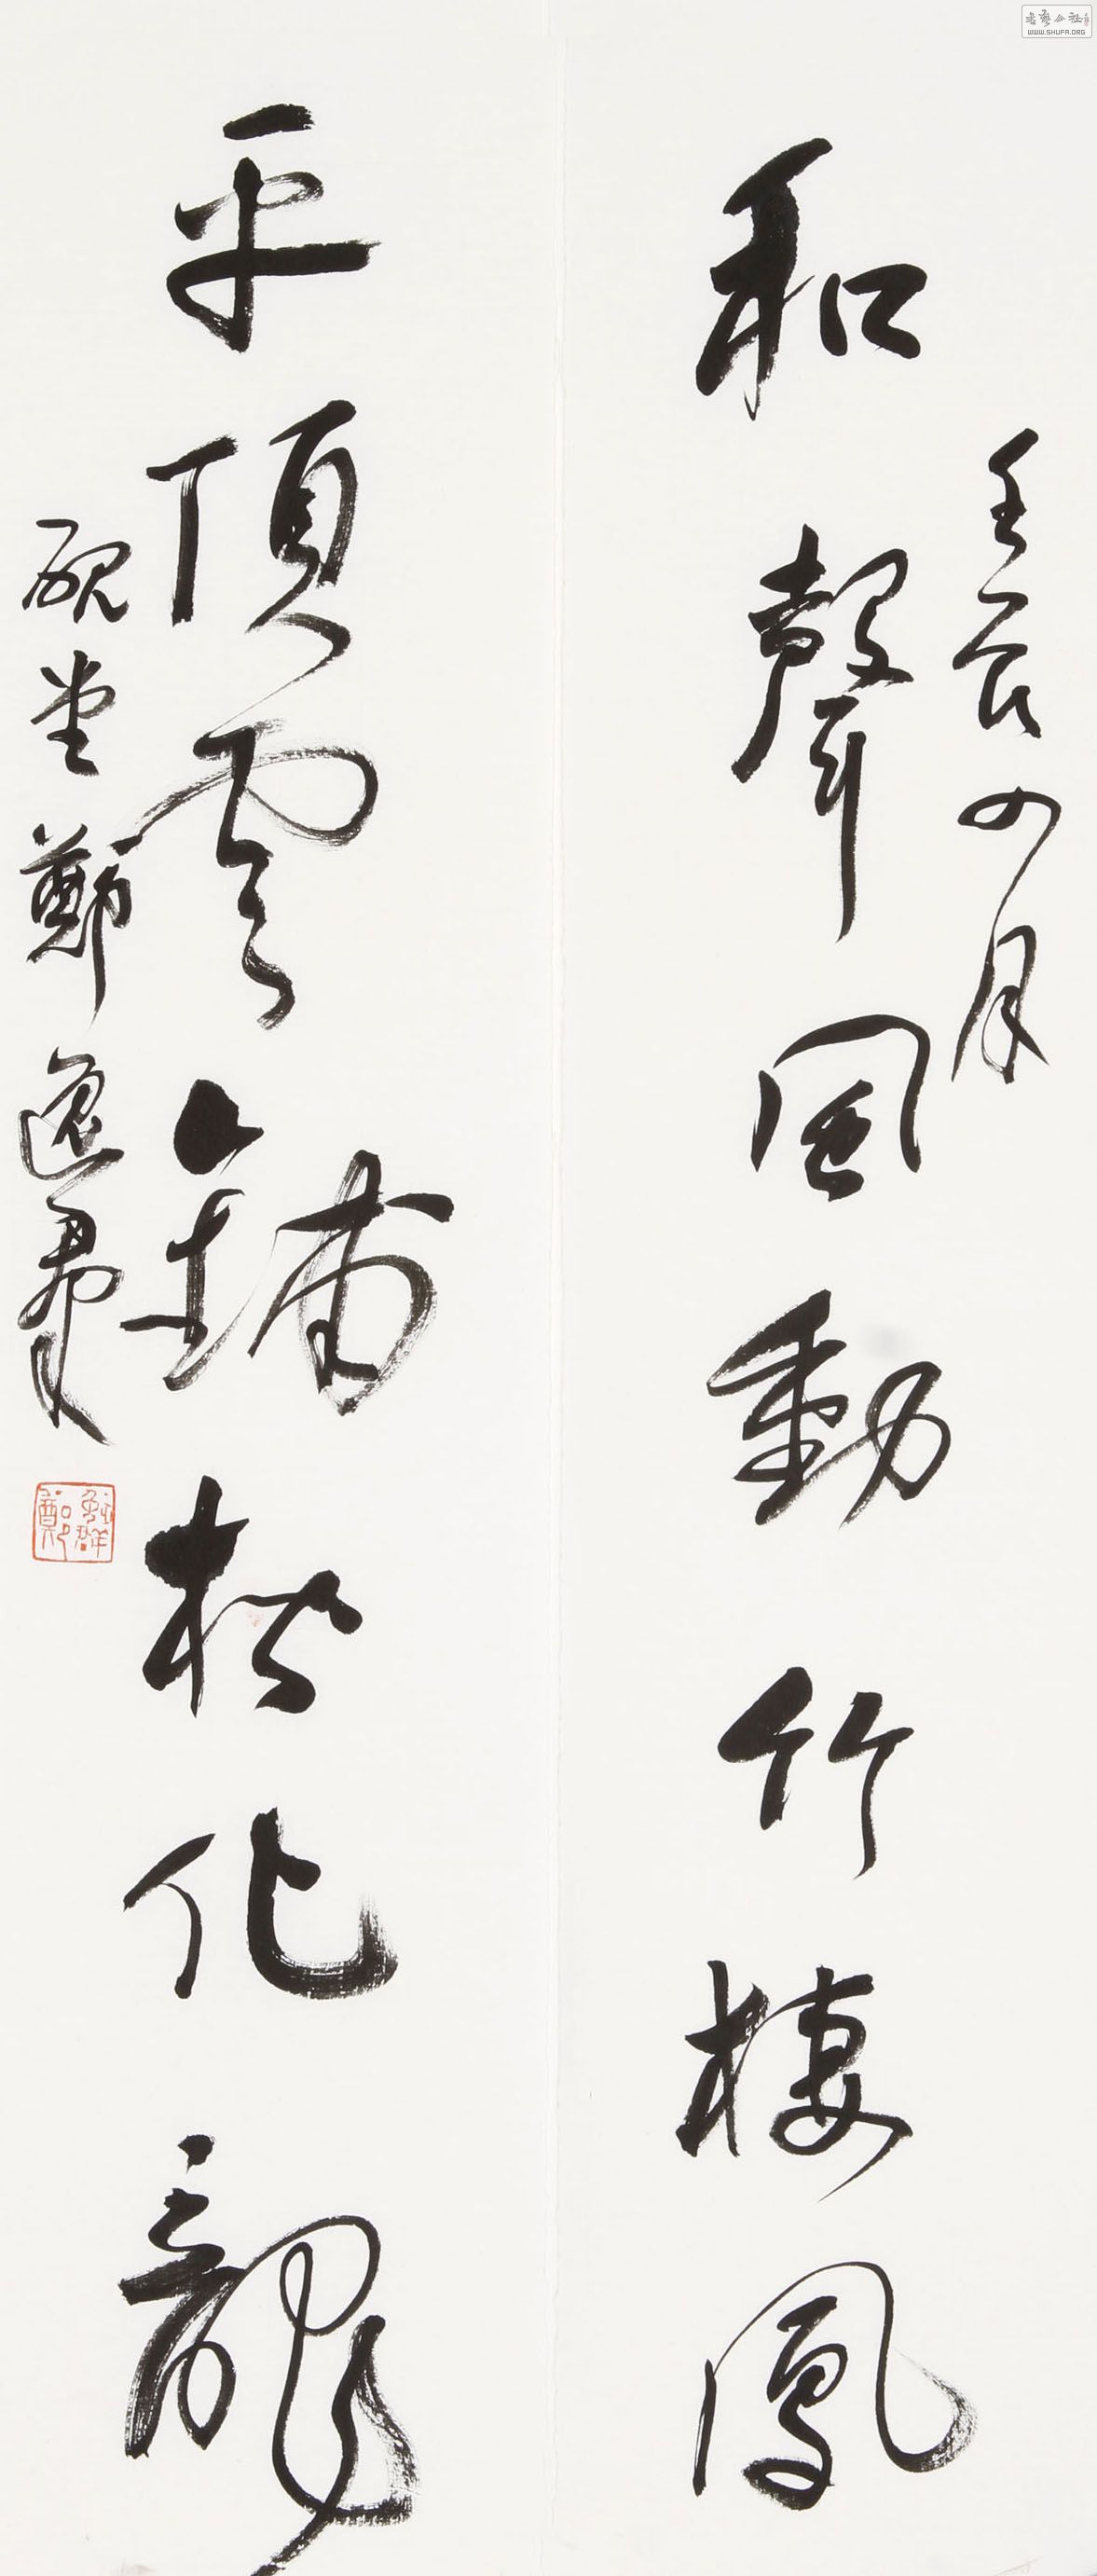 和聲風動竹棲鳳
壬辰四月
平頂雲鋪松化龍
硯堂鄭逸羣
書艺公社
WWW.SHUFA.ORG